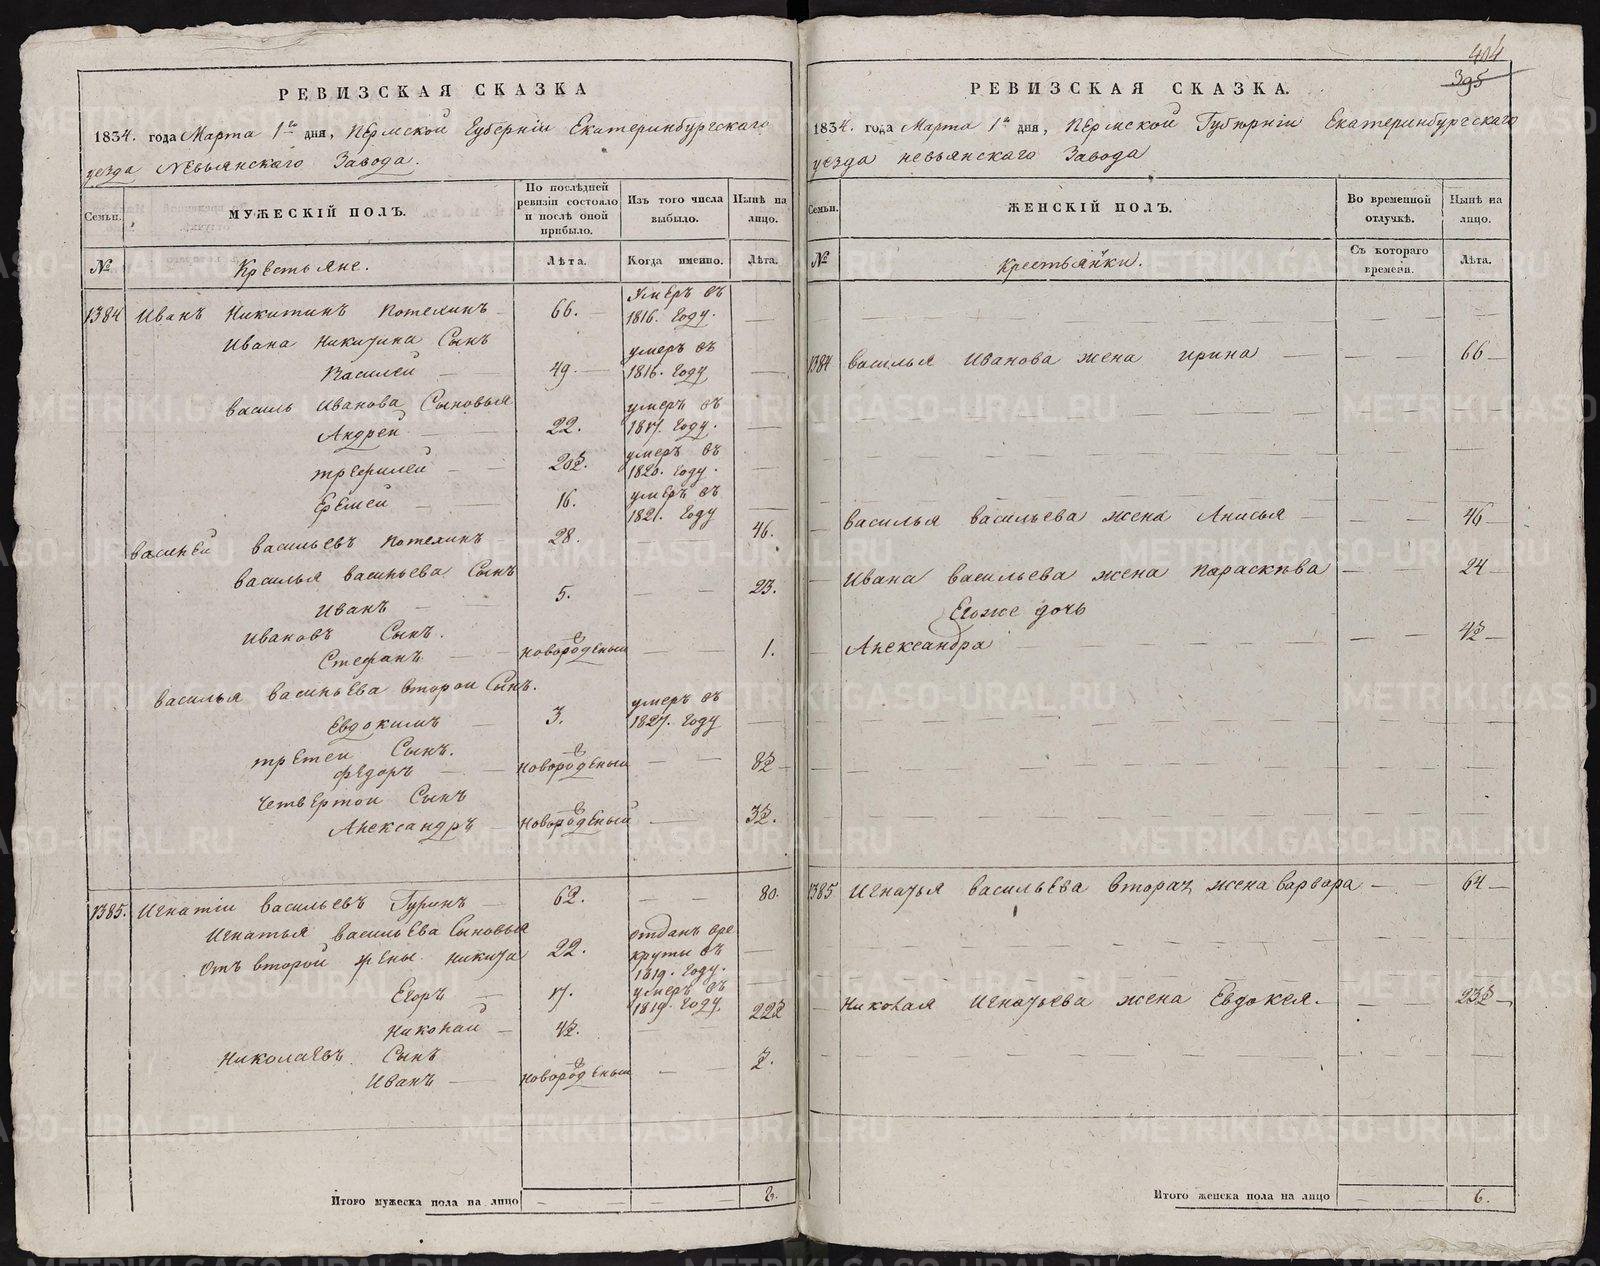 РЕВИЗСКАЯ СКАЗКА
1834. года Марта 1го дня, Пермской Губерніи Екатеринбургскаго
уезда Невьянскаго Завода.
Семьи.
МУЖЕСКІЙ ПОЛЪ.
По послѣдней ревизіи состояло и послѣ оной прибыло.
Изъ того числа выбыло.
Нынѣ на лицо.
№
Крестьяне.
Лѣта.
Когда именно.
Лѣта.
1384 Иванъ Никитинъ Потелинъ 66. Умеръ въ 1816. Году.
Ивана Никитина Сынъ
Василей 49. умеръ въ 1816. Году
Василь Иванова Сыновья
Андрей 22. умеръ въ 1817. Году.
трефилей умеръ въ 1820. Году.
Ефемей 16. умеръ въ 1821. Году
Василей Васильевъ Потелинъ 28. 46.
Василья Васильева Сынъ
Иванъ 5. 23.
Ивановъ Сынъ.
Стефанъ новорожденый 1.
Василья Васильева второй Сынъ.
Евдокимъ 3. умеръ въ 1827. Году
третей Сынъ.
Федоръ новорожденый
четвертой Сынъ
Александръ Новорожденый
1385. Игнатіи Васильевъ Гуринъ 62. 80.
Игнатья Васильева Сыновья
Отъ второй жены Никита 22. отданъ вре круты въ 1819. Году.
Егоръ 17. умеръ въ 1819. Году
Николай
Николаевъ Сынъ
Иванъ новорожденый
Итого мужеска пола на лицо 8.
404
395
РЕВИЗСКАЯ СКАЗКА.
1834. года Марта 1го дня, Пермской Губерніи Екатеринбургскаго
уезда невьянскаго Завода
Семьи.
ЖЕНСКІЙ ПОЛЪ.
Во временной отлучкѣ.
Нынѣ на лицо.
№
Крестьянки.
Съ котораго времени.
Лѣта.
1384 Василья Иванова жена ирина 66
Василья Васильева жена Анисья 46
Ивана Васильева жена Парасковва 24
Егоже дочь
Александра
1385 Игнатья Васильева вторая жена варвара 64
Николая Игнатьева жена Евдокея.
Итого женска пола на лицо 6.
METRIKI.GASO-URAL.RU